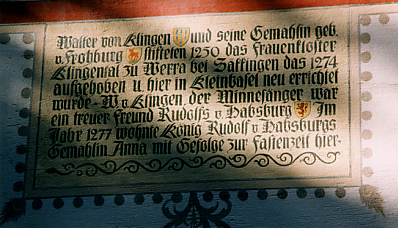 Walter von Klingen und seine Gemahlin geb.
v. Frohburg stifteten 1250 das Frauenkloster
Klingental zu Werra bei Säckingen das 1274
aufgehoben u. hier in Kleinbasel neu errichtet
wurde - W. v. Klingen, der Minnesänger war
ein treuer Freund Rudolfs v. Habsburg Im
Jahr 1277 wohnte König Rudolf v. Habsburgs
Gemahlin Anna mit Gefolge zur Fastenzeit hier-